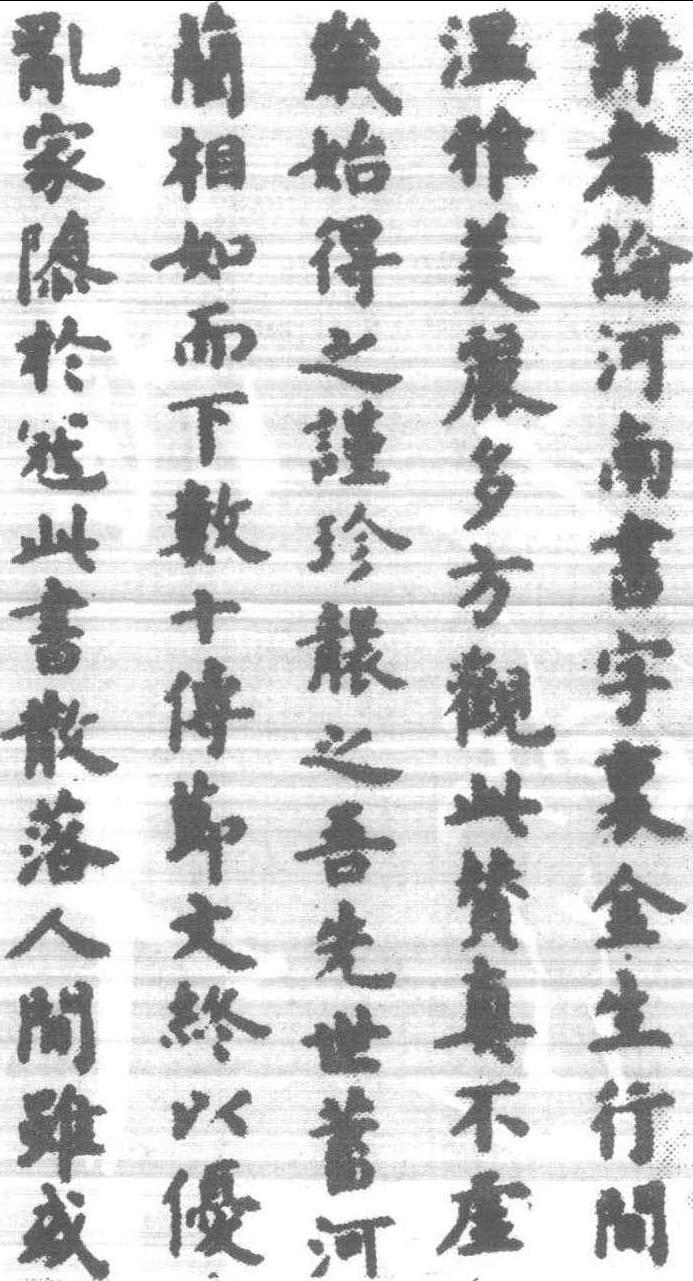 評者論河南書字裏金生行間
温雅美麗多方觀此贊真不虛
歲始得之謹珍襲之吾先世蓄河
藺相如而下數十傳節文終以優
亂家隳於寇此書散落人間雖或